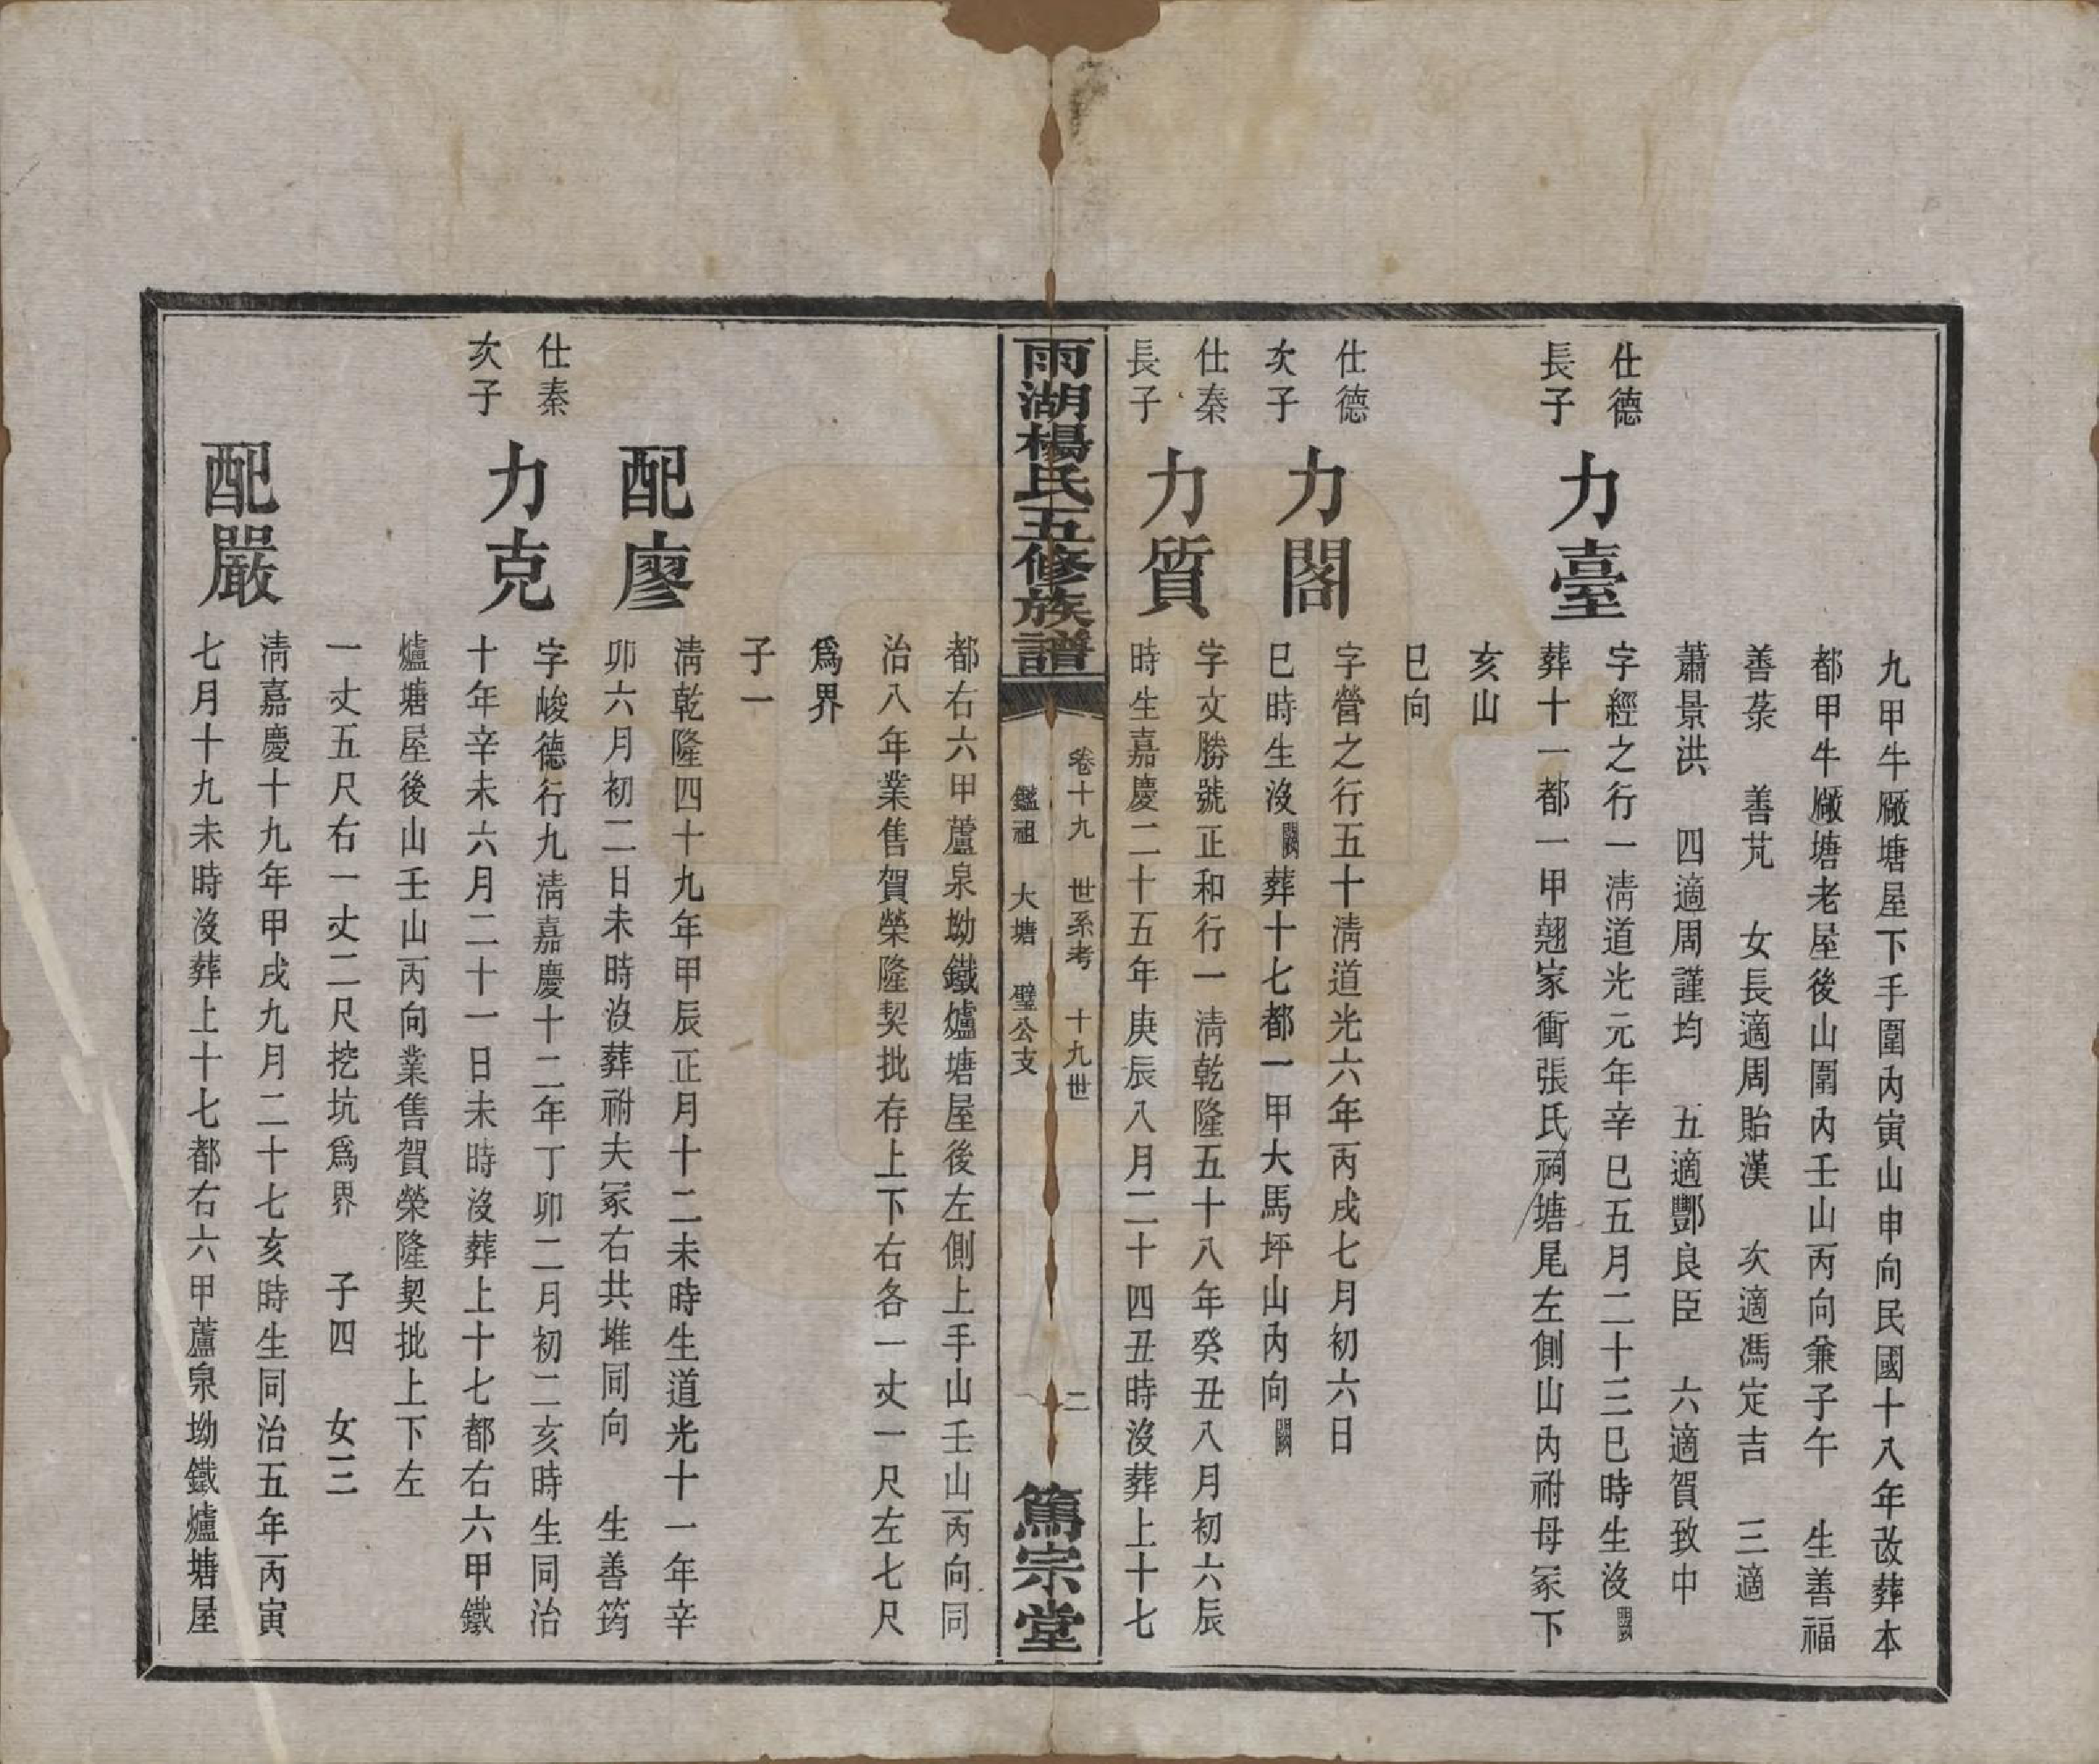 九甲牛廠塘屋下手圍內寅山申向民國十八年改葬本
都甲牛廠塘老屋後山圍內壬山丙向兼子午　生善福
善棻　善芃　女長適周貽漢　次適馮定吉　三適
蕭景洪　四適周謹均　五適酆良臣　六適賀致中
仕德
長子
力臺
字經之行一淸道光元年辛巳五月二十三巳時生沒闕
葬十一都一甲翹家衝張氏祠塘尾左側山內祔母冢下
亥山
巳向
仕德
次子
力閣
字營之行五十淸道光六年丙戌七月初六日
巳時生沒闕葬十七都一甲大馬坪山內向闕
仕秦
長子
力質
字文勝號正和行一淸乾隆五十八年癸丑八月初六辰
時生嘉慶二十五年庚辰八月二十四丑時沒葬上十七
雨湖楊氏五修族譜
卷十九　世系考　十九世
鑑祖　大塘　璧公支
二
篤宗堂
都右六甲蘆泉坳鐵爐塘屋後左側上手山壬山丙向同
治八年業售賀榮隆契批存上下右各一丈一尺左七尺
爲界
子一
配廖
淸乾隆四十九年甲辰正月十二未時生道光十一年辛
卯六月初二日未時沒葬祔夫冢右共堆同向　生善筠
仕秦
次子
力克
字峻德行九淸嘉慶十二年丁卯二月初二亥時生同治
十年辛未六月二十一日未時沒葬上十七都右六甲鐵
爐塘屋後山壬山丙向業售賀榮隆契批上下左
一丈五尺右一丈二尺挖坑爲界　子四　女三
配嚴
淸嘉慶十九年甲戌九月二十七亥時生同治五年丙寅
七月十九未時沒葬上十七都右六甲蘆泉坳鐵爐塘屋